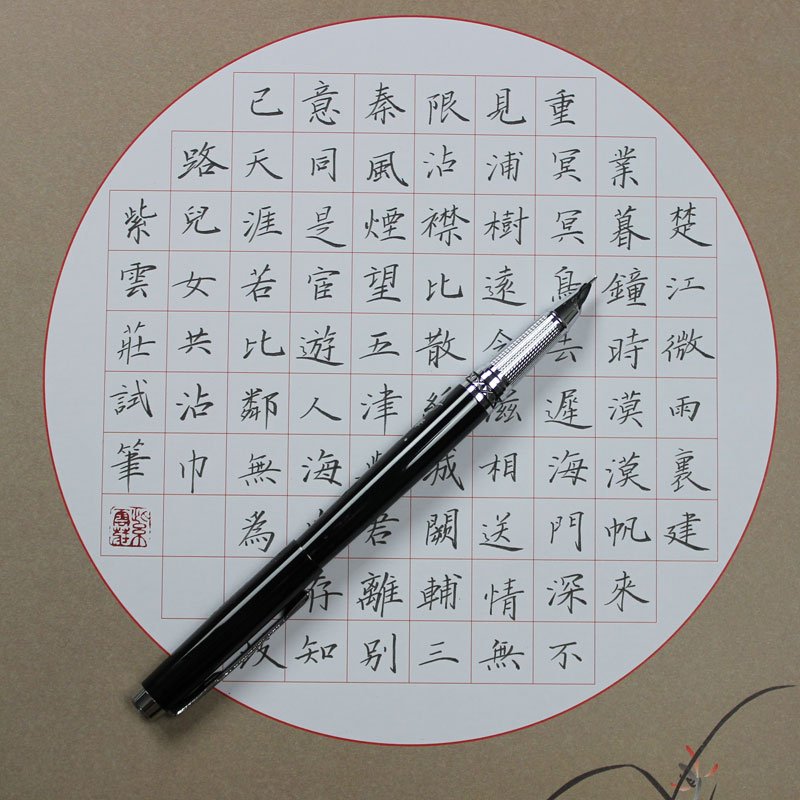 楚江微雨裏建
業暮鐘時漠漠帆來
重冥冥鳥去遲海門深不
見浦樹遠含滋相送情無
限沾襟比散絲城闕輔三
秦風煙望五津與君離別
意同是宦遊人海存知
己天涯若比鄰無為歧
路兒女共沾巾
紫雲莊試筆
紫雲莊